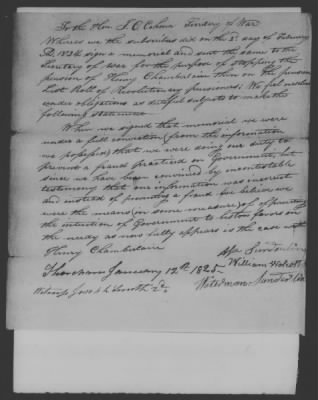 To the Hon. J. C. Calhoun Secretary of War
Whereas we the subscribers did on the 3d day of February
A.D. 1824 sign a memorial and sent the same to the
Secretary of War for the purpose of stopping the
pension of Henry Chamberlain then on the pension
List Roll of Revolutionary pensioners; We feel ourselves
under obligations as dutiful subjects to make the
following statement
When we signed that memorial we were
under a full conviction (from the information
we possessed) that we were doing our duty to
prevent a fraud practised on Government, but
since we have been convinced by incontestable
testimony that our information was incorrect
and instead of preventing a fraud we believe we
were the means (in some measure) of opposing
the intention of Government to bestow favors on
the needy as now fully appears is the case with
Henry Chamberlain
January 12th 1825
Asa Sunderlin
William
Witness Joseph Smith 2d. Sunderlin